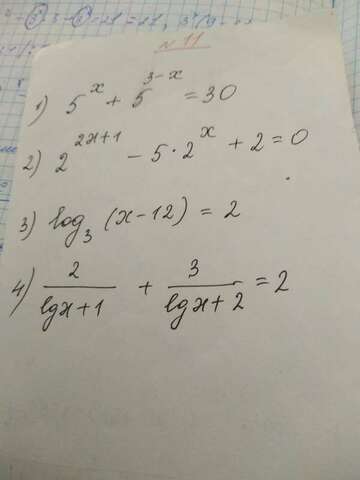 № 11
1) 5^x + 5^{3-x} = 30
2) 2^{2x+1} - 5 · 2^x + 2 = 0
3) log_3 (x-12) = 2
4) \frac{2}{lgx+1} + \frac{3}{lgx+2} = 2